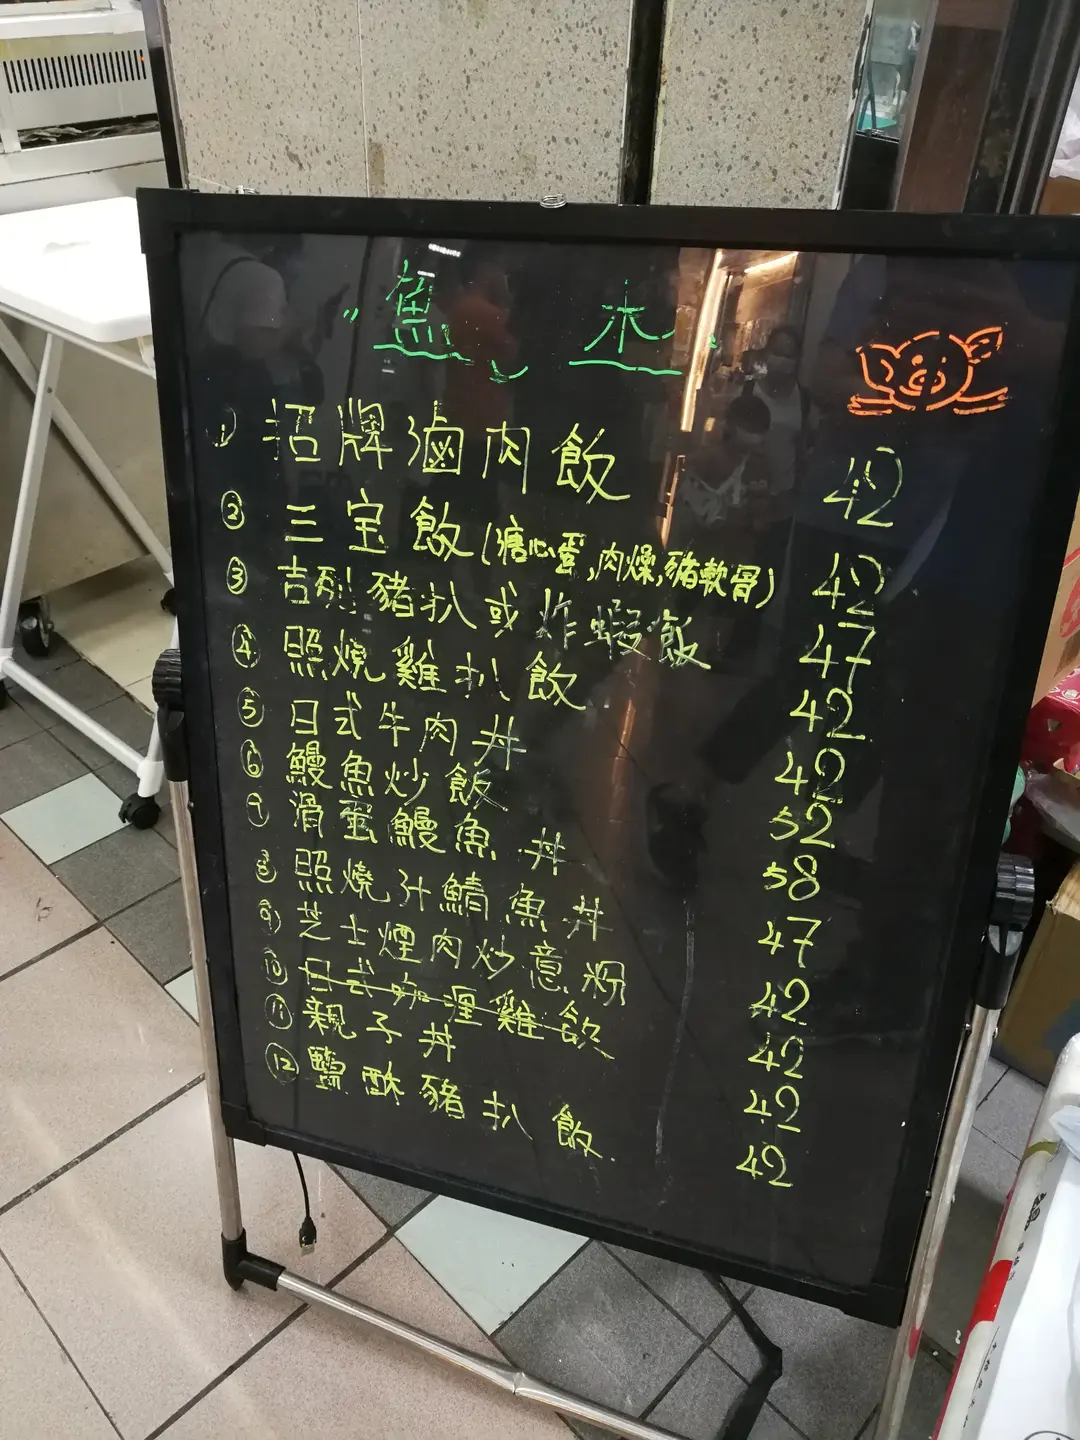 魚 木
① 招牌滷肉飲 42
② 三宝飲(溏心蛋,肉燥,豬軟骨) 42
③ 吉列豬扒或炸蝦飯 47
④ 照燒雞扒飲 42
⑤ 日式牛肉丼 42
⑥ 鰻魚炒飯 52
⑦ 滑蛋鰻魚丼 58
⑧ 照燒汁鯖魚丼 47
⑨ 芝士煙肉炒意粉 42
⑩ 日式咖喱雞飲 42
⑪ 親子丼 42
⑫ 鹽酥豬扒飲 42